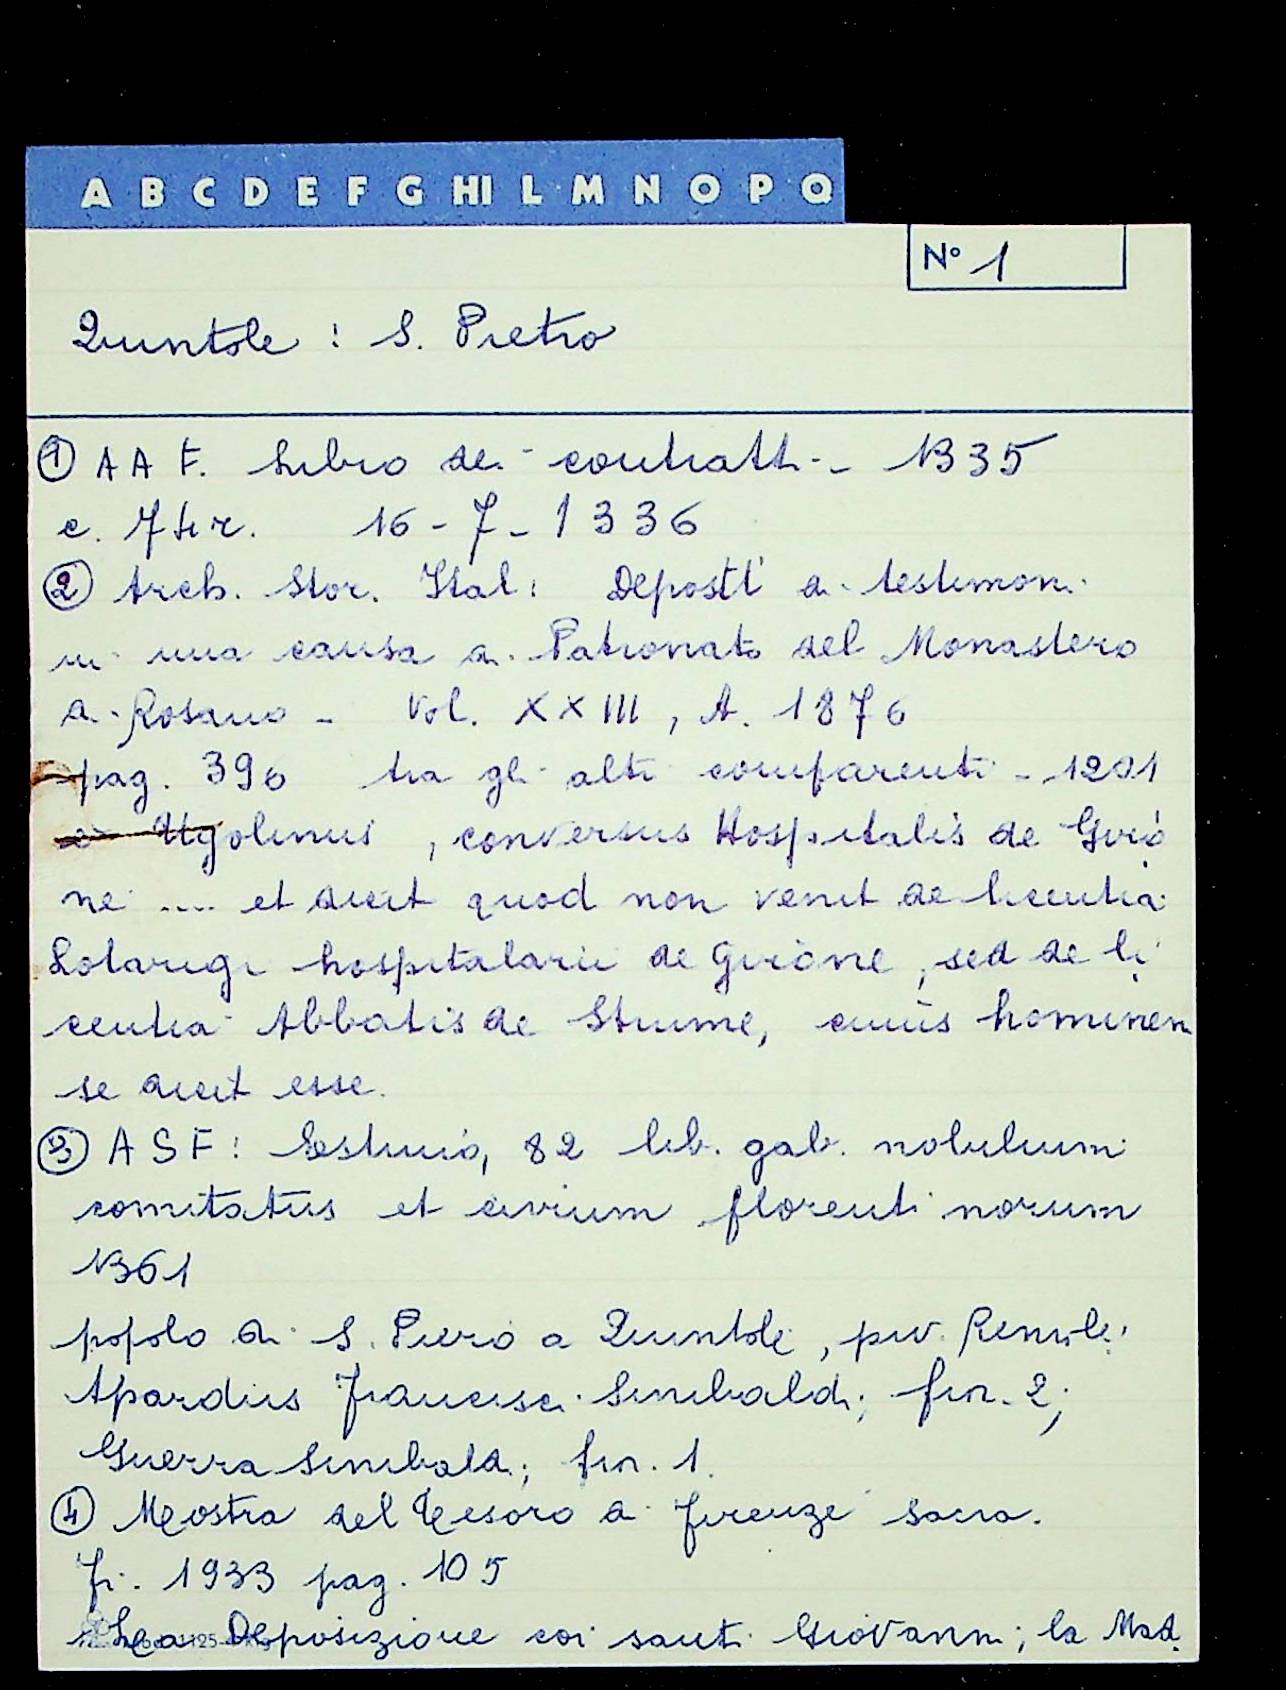 A B C D E F G HI L M N O P Q
N° 1
Quintole : S. Pietro
① A A F. Libro dei contratti - 1335
c. 74r. 16-7-1336
② Arch. Stor. Ital: Deposti di testimoni
in una causa di Patronato del Monastero
di Rosano - Vol. XXIII, A. 1876
pag. 396 tra gli altri comparenti - 1201
Ugolinus, conversus Hospitalis de Giro
ne .... et dicit quod non venit de licentia
Lotaringi hospitalarii de Girone, sed de li
centia Abbatis de Strume, cuius hominem
se dicit esse.
③ A S F: Estimo, 82 lib. gab. nobilium
comitatus et civium florentinorum
1361
popolo di S. Piero a Quintole, piv. Remole:
Apardus Francisci Sinibaldi; fior. 2;
Guerra Sinibaldi; fior. 1.
④ Mostra del Tesoro di Firenze sacra.
Fi. 1933 pag. 105
La Deposizione coi santi Giovanni; la Mad